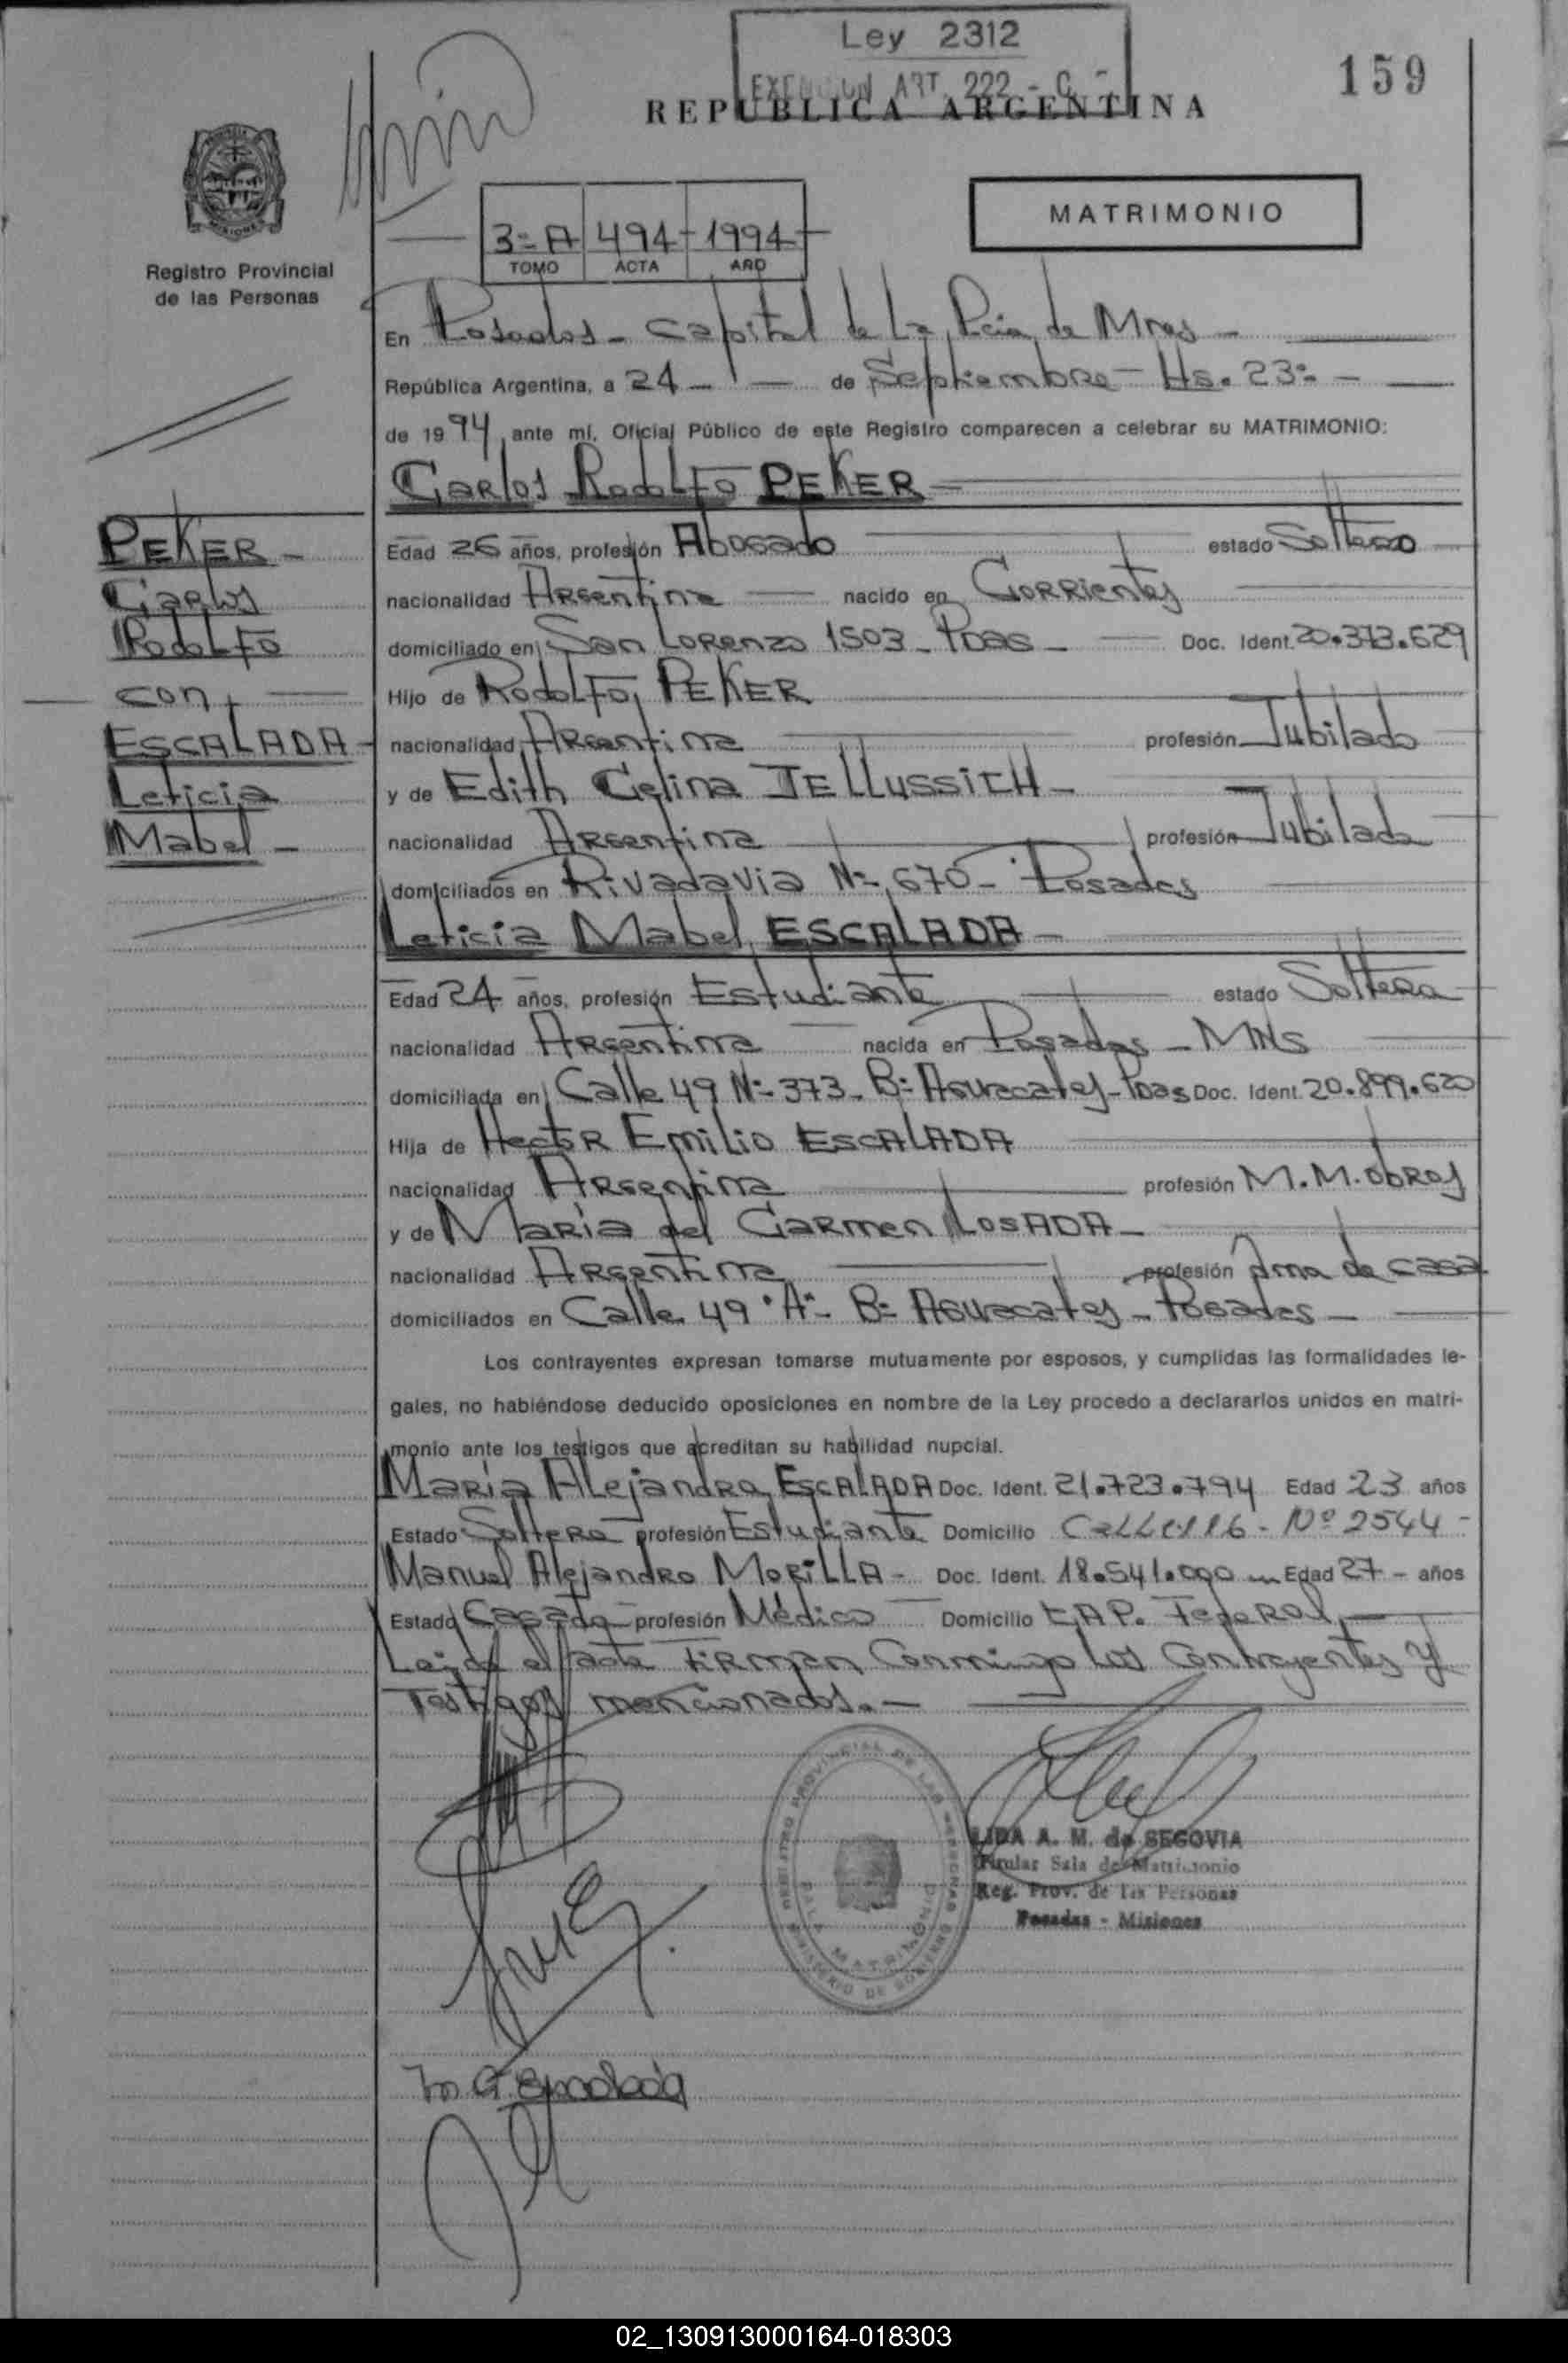 Ley 2312
EXENCION ART. 222 - C.
159
REPUBLICA ARGENTINA
MATRIMONIO
3=A 494 1994
TOMO ACTA AÑO
Registro Provincial
de las Personas
En Posadas - Capital de La Pcia de Mnes -
República Argentina, a 24 - de Septiembre - Hs. 23=
de 1994, ante mí, Oficial Público de este Registro comparecen a celebrar su MATRIMONIO:
Carlos Rodolfo PEKER
PEKER -
Carlos
Rodolfo
con
ESCALADA -
Leticia
Mabel -
Edad 26 años, profesión Abogado estado Soltero
nacionalidad Argentina nacido en Corrientes
domiciliado en San Lorenzo 1503 - Pdas - Doc. Ident. 20.373.629
Hijo de Rodolfo PEKER
nacionalidad Argentina profesión Jubilado
y de Edith Celina JELLUSSICH -
nacionalidad Argentina profesión Jubilada
domiciliados en Rivadavia N= 670 - Posadas
Leticia Mabel ESCALADA -
Edad 24 años, profesión Estudiante estado Soltera
nacionalidad Argentina nacida en Posadas - MNS
domiciliada en Calle 49 N= 373 - B= Aguacates - Pdas Doc. Ident. 20.899.620
Hija de Hector Emilio ESCALADA
nacionalidad Argentina profesión M.M. Obras
y de Maria del Carmen LOSADA -
nacionalidad Argentina profesión Ama de casa
domiciliados en Calle 49 "A" - B= Aguacates - Posadas -
Los contrayentes expresan tomarse mutuamente por esposos, y cumplidas las formalidades le-
gales, no habiéndose deducido oposiciones en nombre de la Ley procedo a declararlos unidos en matri-
monio ante los testigos que acreditan su habilidad nupcial.
María Alejandra ESCALADA Doc. Ident. 21.723.794 Edad 23 años
Estado Soltera profesión Estudiante Domicilio Calle 116 - Nº 2544 -
Manuel Alejandro MORILLA - Doc. Ident. 18.541.090 Edad 27 - años
Estado Casado profesión Médico Domicilio CAP. Federal
Leida el acta firman Conmigo Los Contrayentes y
Testigos mencionados. -
LIDA A. M. de SEGOVIA
Titular Sala de Matrimonio
Reg. Prov. de las Personas
Posadas - Misiones
REGISTRO PROVINCIAL DE LAS PERSONAS
MINISTERIO DE GOBIERNO
SALA MATRIMONIO
02_130913000164-018303